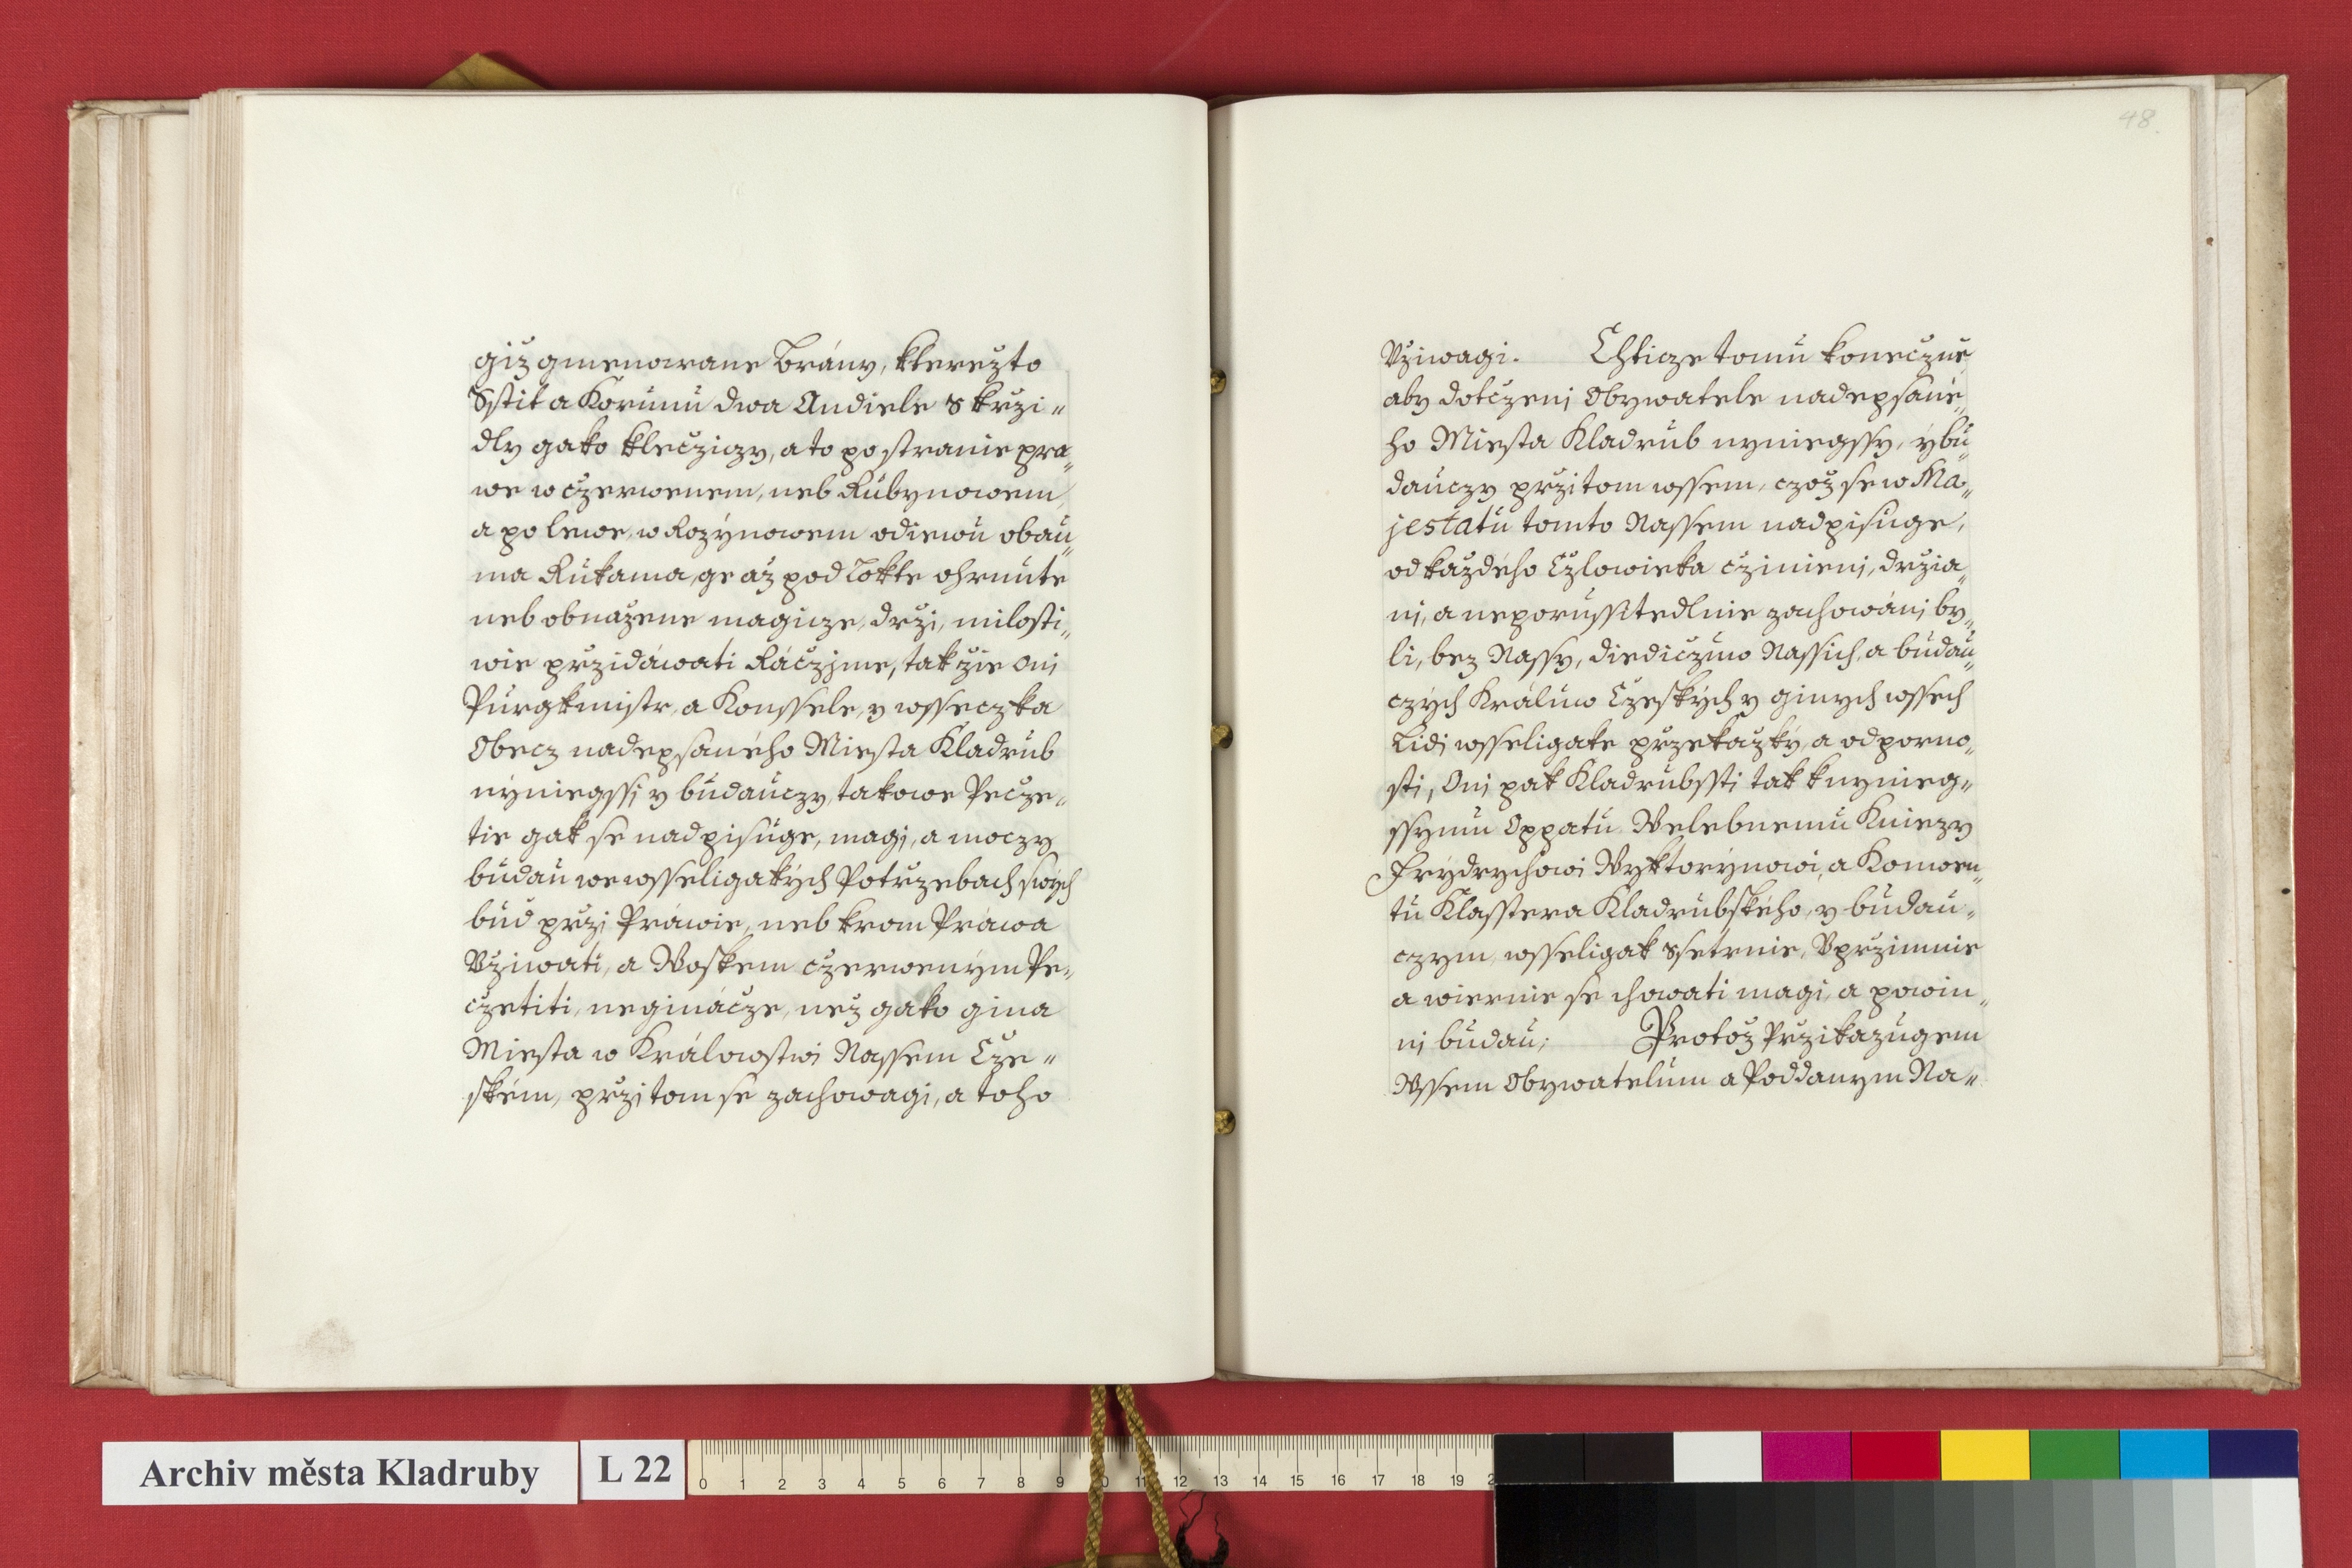 giž gmenowane Brány, kterežto
Sstit a Korunu dwa Andiele s krzi„
dly gako klecziczy, a to po stranie pra„
we w czerwenem, neb Rubynowem,
a po lewe, w Rozýnowem odiewu obau„
ma Rukama, ge až pod Lokte ohrnute
neb obnažene magicze, drži, milosti„
wie przidáwati Ráczjme, tak žie oni
Purgkmistr, a Konssele, y wsseczka
Obecz nadepsaného Miesta Kladrub
nýniegssi y budauczy, takowe Pecze„
tie gak se nadpisuge, magj, a moczy
budau we wsseligakých Potrzebach swých
bud przi Práwie, neb krom Práwa
Vžiwati, a Woskem czerweným Pe„
czetiti, neginácze, než gako gina
Miesta w Králowstwi Nassem Cze„
ském, przi tom se zachowagi, a toho
48.
Vžiwagi. Chticze tomu konečzně,
aby dotczenj Obywatele nadepsané„
ho Miesta Kladrub nyniegssy, ý bu„
dauczy przi tom wssem, czož se w Ma„
jestatu tomto Nassem nadpisuge,
od každého Czlowieka czinienj, držia„
nj, a neporussitedlnie zachowánj by„
li, bez Nassy, diediczuw Nassich, a budau„
czých Králuw Czeských y ginych wssech
Lidj wsseligake przekažký, a odporno„
sti, Onj pak Kladrubssti tak k nynieg„
ssymu Oppatu Welebnemu Kniezy
Frýdrychowi Wyktorýnowi, a Konwen„
tu Klasstera Kladrubského, y budau„
czym wsseligak ssetrnie, Vprzimnie
a wiernie se chowati magi, a powin„
nj budau; Protož Przikazugem
Wssem Obywatelum a Poddanym Na„
Archiv města Kladruby
L 22
0 1 2 3 4 5 6 7 8 9 10 11 12 13 14 15 16 17 18 19 2